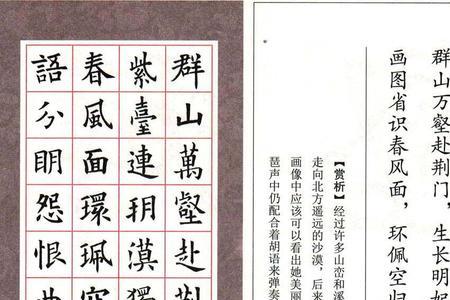 群山万壑赴荆门，生长明妃
画图省识春风面，环佩空归
【赏析】经过许多山峦和溪
走向北方遥远的沙漠，后来
画像中应该可以看出她美丽
琶声中仍配合着胡语来弹奏
群山萬壑赴荆
紫臺連朔漠獨
春風面環珮空
語分眀怨恨曲